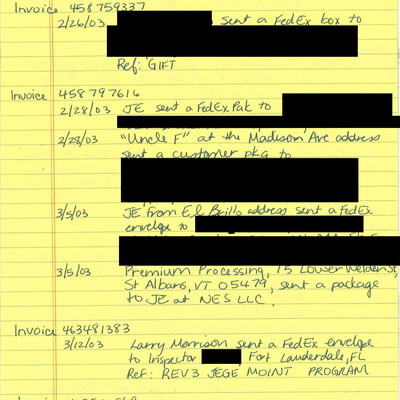 Invoice 458759337
2/26/03 sent a FedEx box to
Ref: GIFT
Invoice 458797616
2/28/03 JE sent a FedEx Pak to
2/28/03 "Uncle F" at the Madison Ave address
sent a customer pkg to
3/5/03 JE from El Brillo address sent a FedEx
envelope to
3/5/03 Premium Processing, 75 Lower Welden St,
St Albans, VT 05479, sent a package
to JE at NES LLC.
Invoice 463481383
3/12/03 Larry Morrison sent a FedEx envelope
to Inspector Fort Lauderdale, FL
Ref: REV3 JEGE MOINT PROGRAM